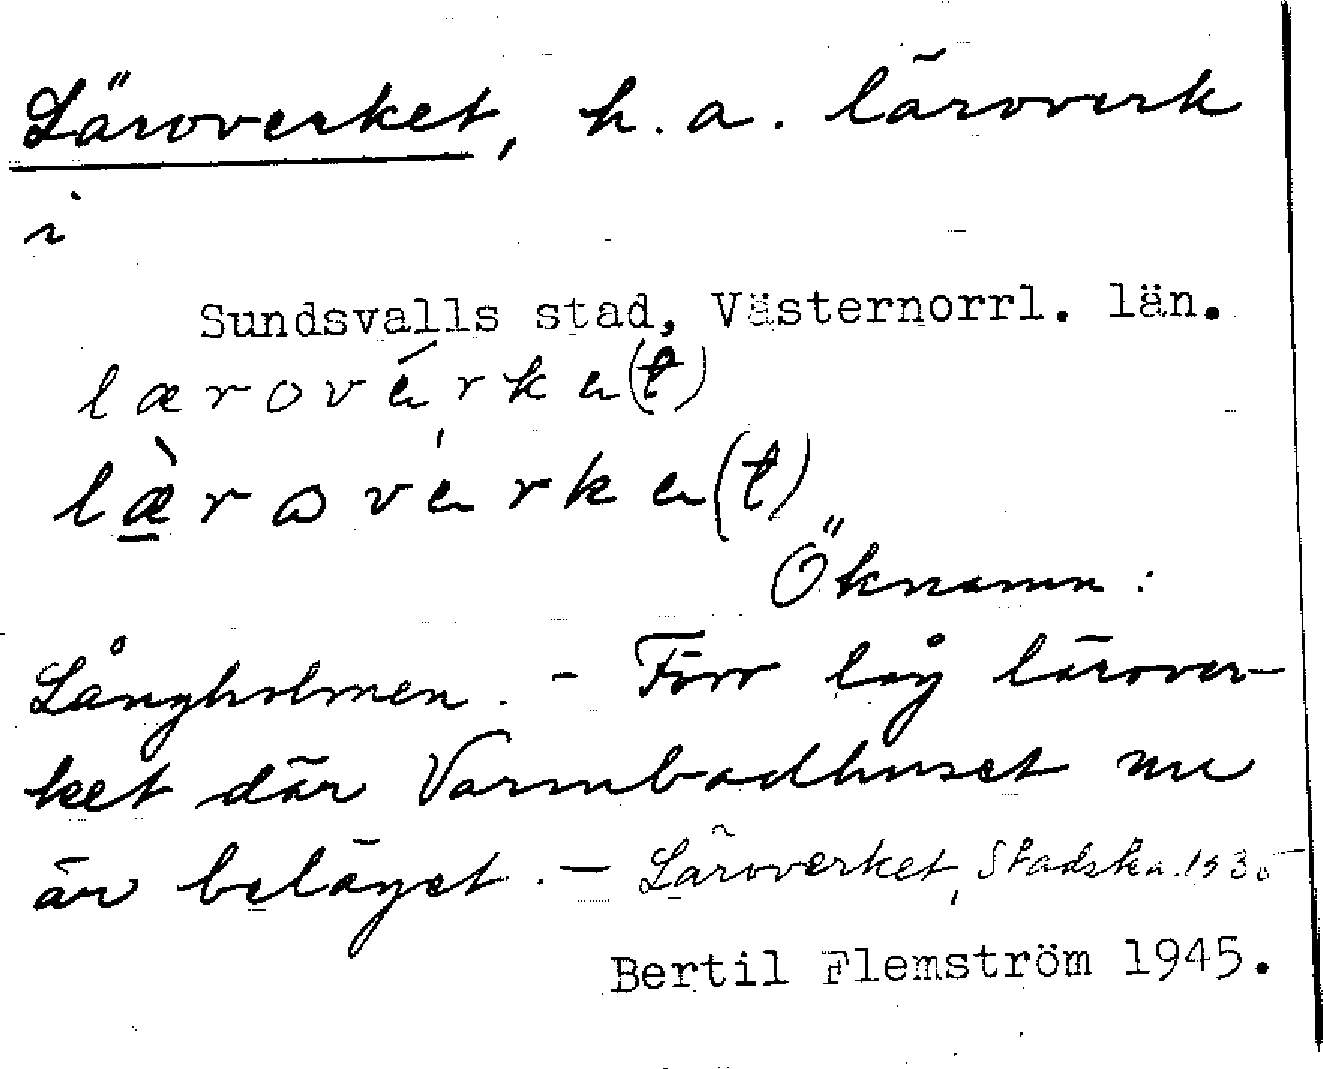 Läroverket, h. a. läroverk
i
Sundsvalls stad, Västernorrl. län.
lærovérke(t)
læ̀rove̍rke(t)
Öknamn:
Långholmen. - Förr låg lärover-
ket där Varmbadhuset nu
är beläget. - Läroverket, Stadska. 1935
Bertil Flemström 1945.